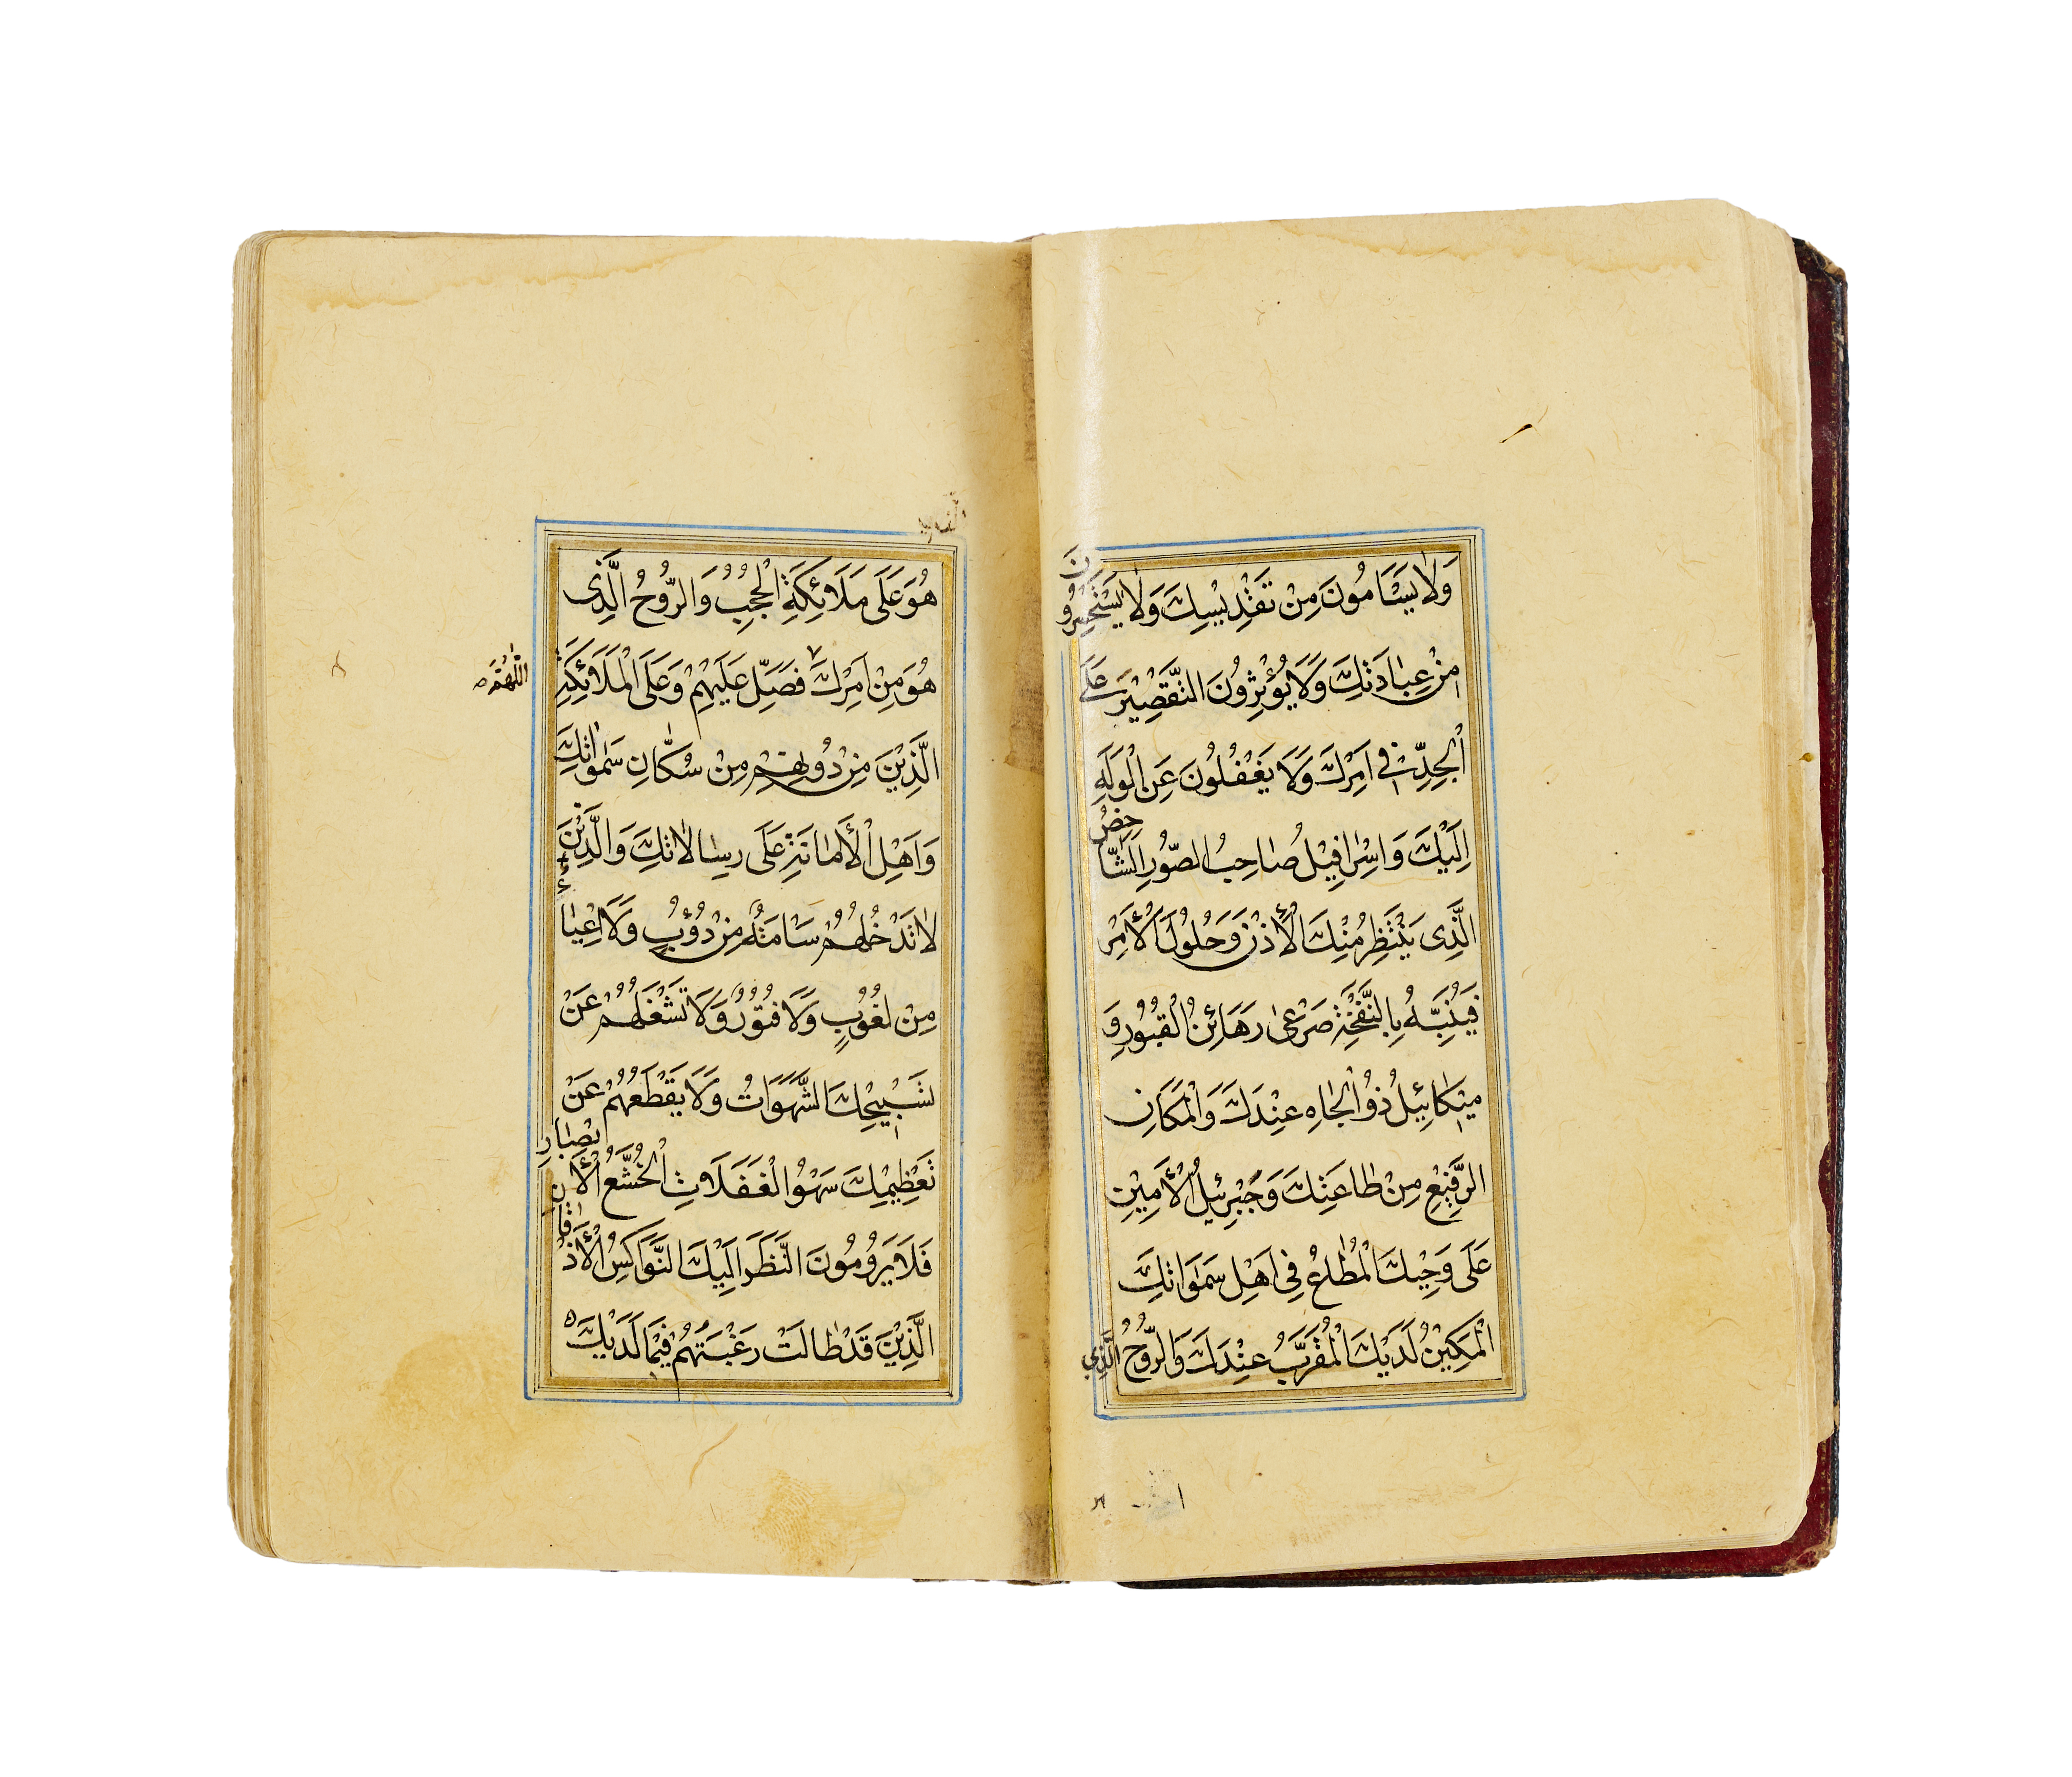 وَلَا يَسْأَمُونَ مِنْ تَقْدِيسِكَ وَلَا يَسْتَحْسِرُونَ
مِنْ عِبَادَتِكَ وَلَا يُؤْثِرُونَ التَّقْصِيرَ عَلَى
الْجِدِّ فِي أَمْرِكَ وَلَا يَغْفُلُونَ عَنِ الْوَلَهِ
إِلَيْكَ وَإِسْرَافِيلُ صَاحِبُ الصُّورِ الشَّاخِصُ
الَّذِي يَنْتَظِرُ مِنْكَ الْأُذْنَ وَحُلُولَ الْأَمْرِ
فَيُنَبِّهُ بِالنَّفْخَةِ صَرْعَى رَهَائِنِ الْقُبُورِ وَ
مِيكَائِيلُ ذُو الْجَاهِ عِنْدَكَ وَالْمَكَانِ
الرَّفِيعِ مِنْ طَاعَتِكَ وَجَبْرَئِيلُ الْأَمِينُ
عَلَى وَحْيِكَ الْمُطَاعُ فِي أَهْلِ سَمَوَاتِكَ
الْمَكِينُ لَدَيْكَ الْمُقَرَّبُ عِنْدَكَ وَالرُّوحُ الَّذِي
هُوَ عَلَى مَلَائِكَةِ الْحُجُبِ وَالرُّوحُ الَّذِي
هُوَ مِنْ أَمْرِكَ فَصَلِّ عَلَيْهِمْ وَعَلَى الْمَلَائِكَةِ
اللّٰهُمَّ
الَّذِينَ مِنْ دُونِهِمْ مِنْ سُكَّانِ سَمٰوَاتِكَ
وَأَهْلِ الْأَمَانَةِ عَلَى رِسَالَاتِكَ وَالَّذِينَ
لَا تَدْخُلُهُمْ سَأْمَةٌ مِنْ دُؤُبٍ وَلَا إِعْيَاءٌ
مِنْ لُغُوبٍ وَلَا فُتُورٌ وَلَا تَشْغَلُهُمْ عَنْ
تَسْبِيحِكَ الشَّهَوَاتُ وَلَا يَقْطَعُهُمْ عَنْ
تَعْظِيمِكَ سَهْوُ الْغَفَلَاتِ الْخُشَّعُ الْأَبْصَارِ
فَلَا يَرُومُونَ النَّظَرَ إِلَيْكَ النَّوَاكِسُ الْأَذْقَانِ
الَّذِينَ قَدْ طَالَتْ رَغْبَتُهُمْ فِيمَا لَدَيْكَ